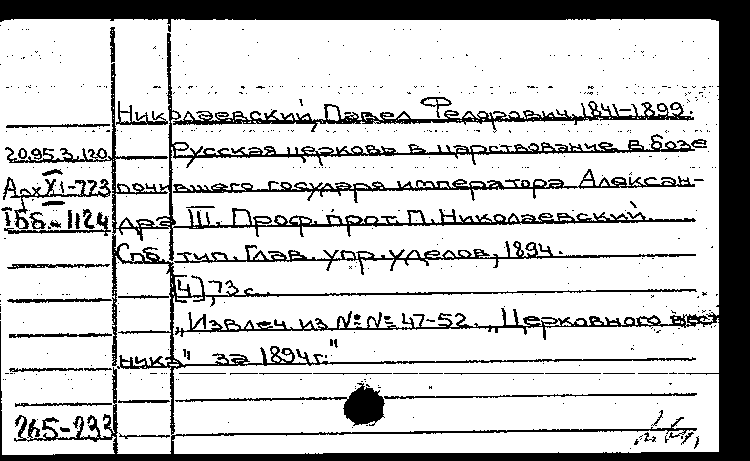 Николаевский, Павел Федорович, 1841-1899.
20.95.3.120. Русская церковь в царствование в бозе
Арх XI-773 почившего государя императора Алексан-
Iбб.-1124 дра III. Проф. прот. П. Николаевский.
Спб, тип. Глав. упр. уделов, 1894.
[4], 73 с.
„Извлеч. из №№ 47-52. „Церковного вест
ника" за 1894г."
265-233